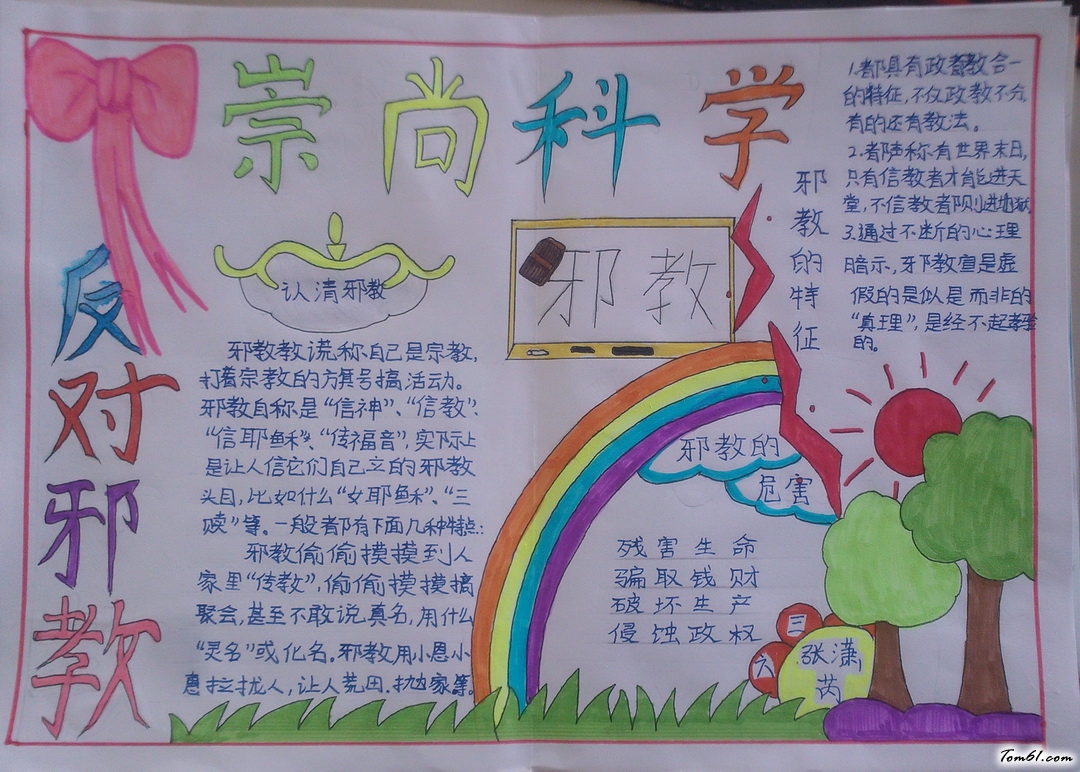 崇尚科学
反对邪教
认清邪教
邪教教谎称自己是宗教,
打着宗教的方旗号搞活动。
邪教自称是“信神”、“信教”、
“信耶稣”、“传福音”,实际上
是让人信它们自己立的邪教
头目,比如什么“女耶稣”、“三
赎”等。一般者都有下面几种特点:
邪教偷偷摸摸到人
家里“传教”,偷偷摸摸搞
聚会,甚至不敢说真名,用什么
“灵名”或化名。邪教用小恩小
惠拉拢人,让人荒田、抛家等。
邪教
邪教的特征
1.都具有政教合一
的特征,不仅政教不分
有的还有教法。
2.都声称有世界末日,
只有信教者才能进天
堂,不信教者则进地狱
3.通过不断的心理
暗示,邪教宣是虚
假的是似是而非的
“真理”,是经不起考验
的。
邪教的
危害
残害生命
骗取钱财
破坏生产
侵蚀政权
三
六
张潇
芮
Tom61.com